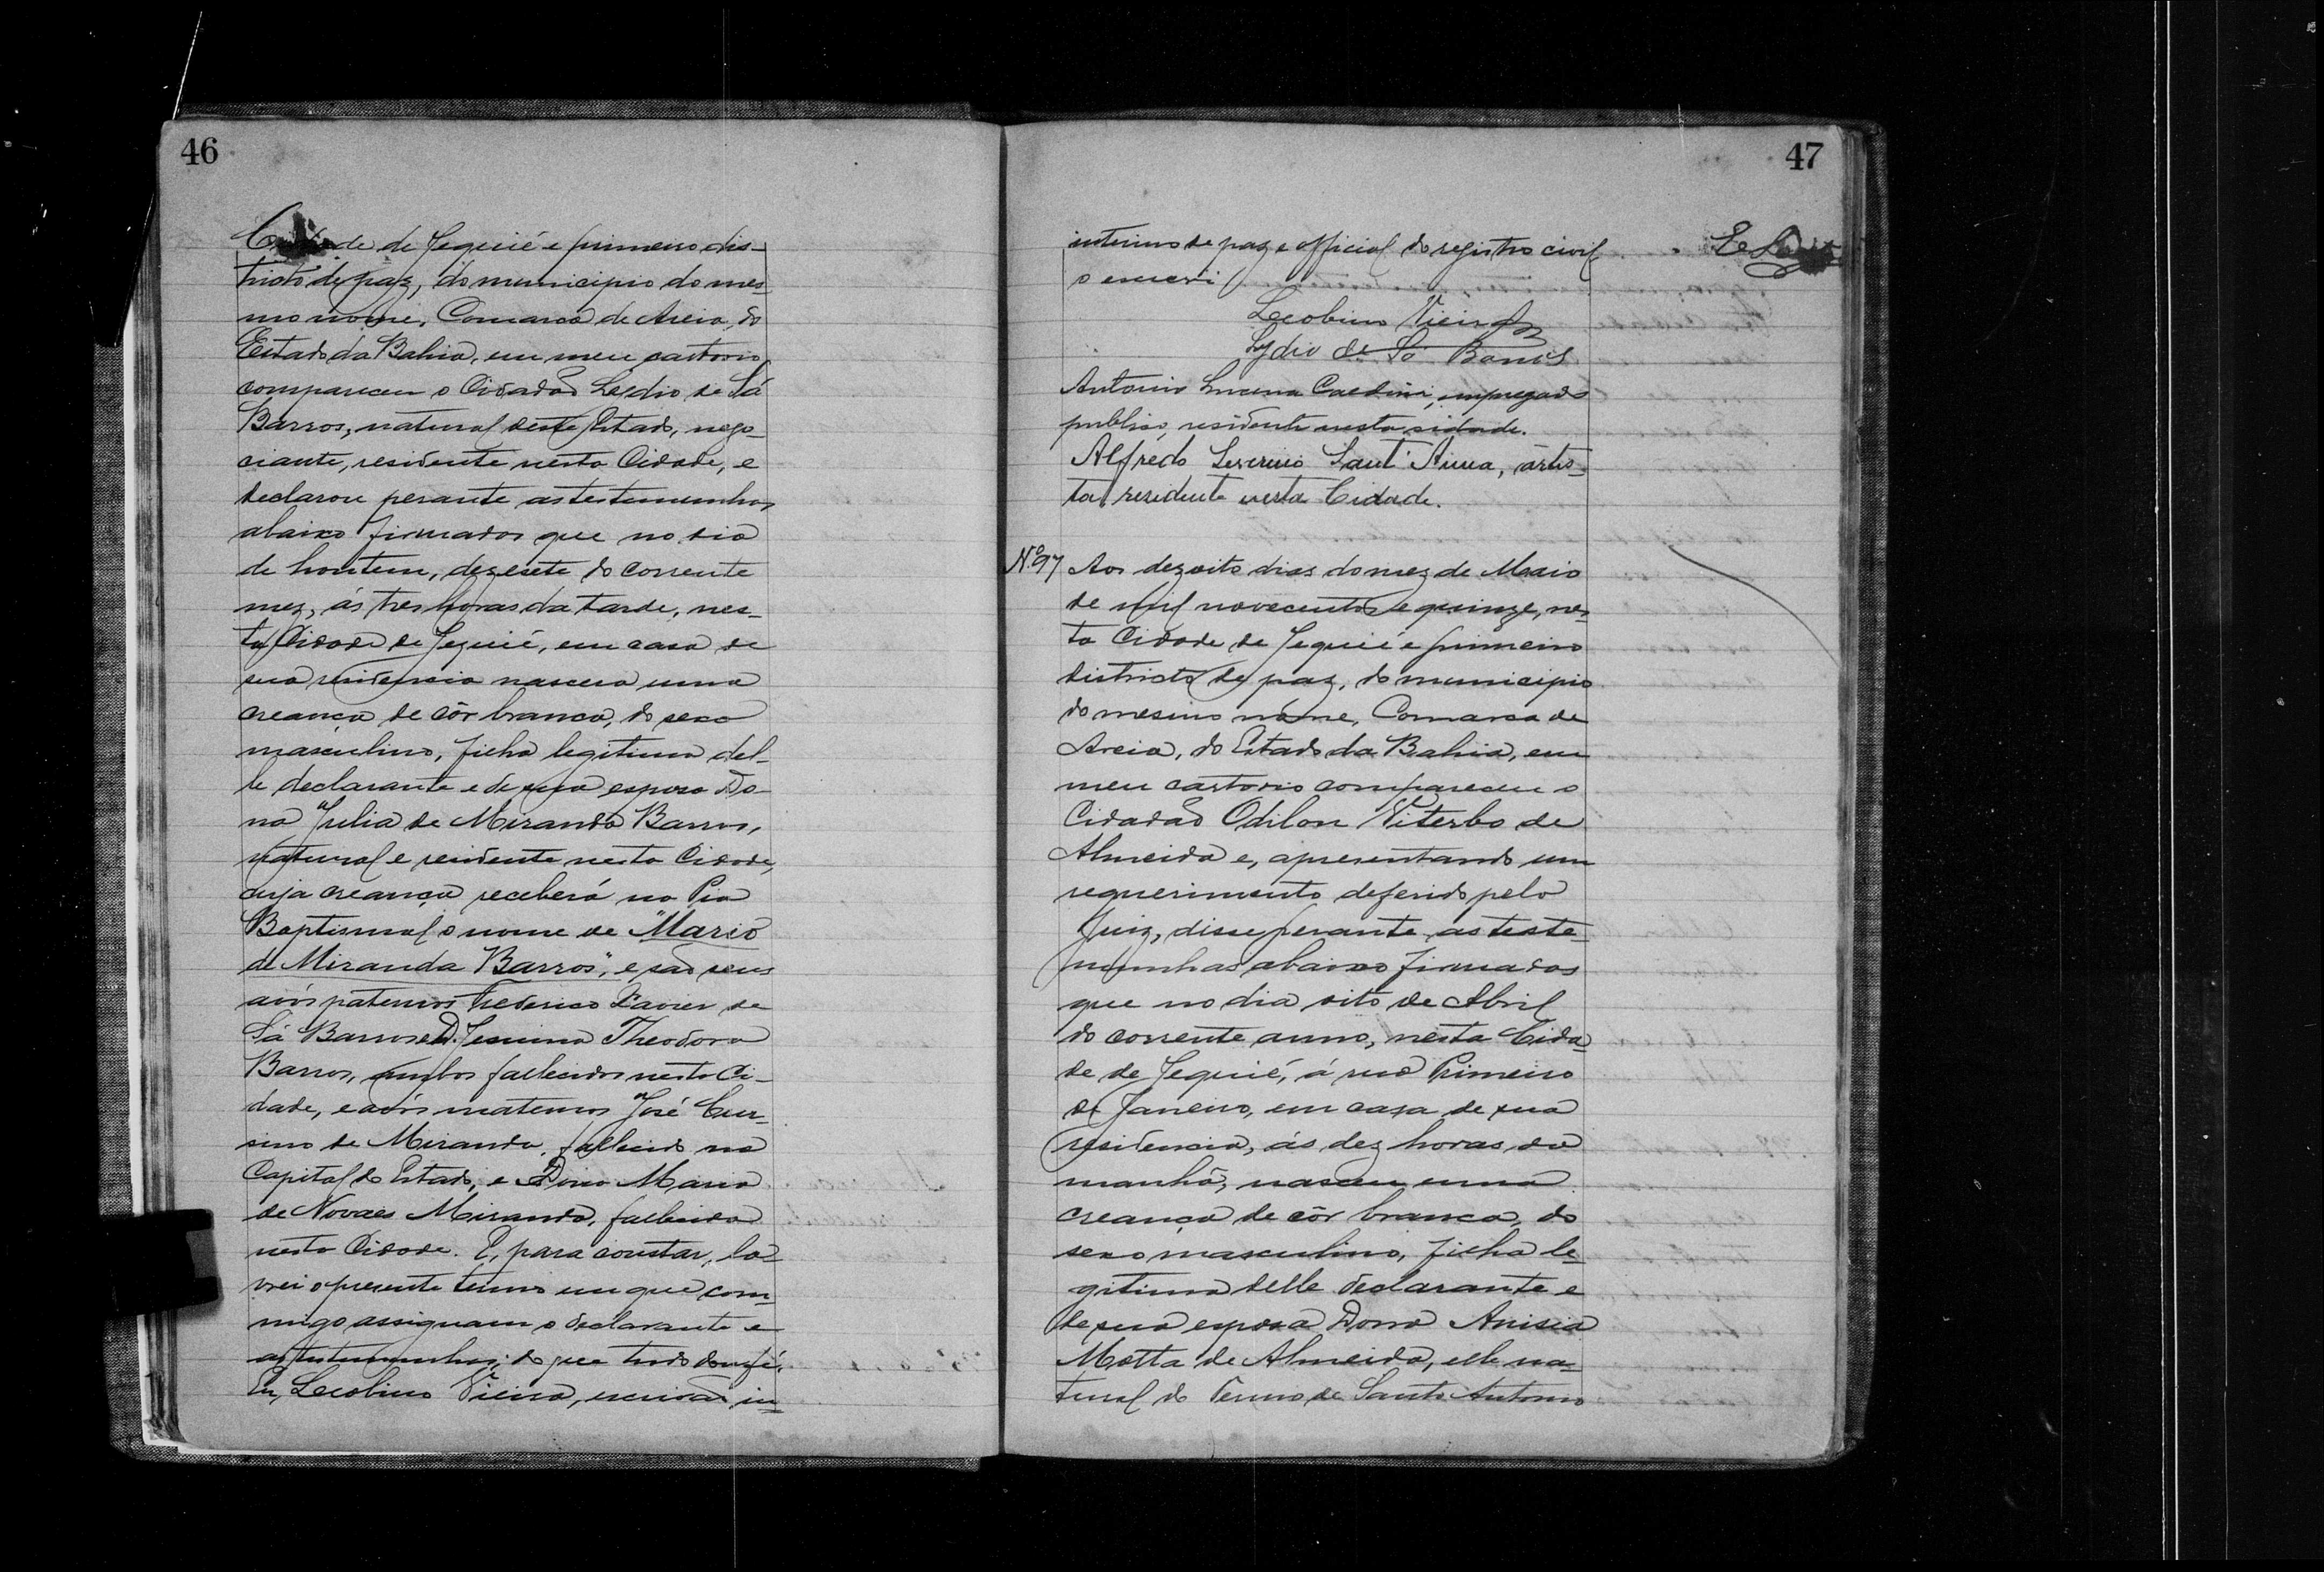 46
Cidade de Jequié e primeiro dis-
tricto de paz, do municipio do mes
mo nome, Comarca de Areia, do
Estado da Bahia, em meu cartorio
compareceu o Cidadão Lydio de Sá
Barros, natural deste Estado, nego-
ciante, residente nesta Cidade, e
declarou perante as testemunhas
abaixo firmadas que no dia
de hontem, dezesete do corrente
mez, ás tres horas da tarde, nes-
ta Cidade de Jequié, em casa de
sua residencia nascera uma
creança de côr branca, do sexo
masculino, filha legitima del-
le declarante e de sua esposa Do-
na Julia de Miranda Barros,
natural e residente nesta Cidade,
cuja creança receberá na Pia
Baptismal o nome de "Mario
de Miranda Barros", e são seus
avós paternos Frederico Xavier de
Sá Barros e D. Jesuina Theodora
Barros, ambos fallecidos nesta Ci-
dade, e avós maternos José Cur-
sino de Miranda, fallecido na
Capital do Estado, e Dona Maria
de Novaes Miranda, fallecida
nesta Cidade. E, para constar, la-
vrei o presente termo em que com-
migo assignam o declarante e
as testemunhas; do que tudo dou fé.
Eu, Leobino Vieira, escrivão in-
47
interino de paz e official do registro civil
o escrevi
Leobino Vieira
Lydio de Sá Barros
Antonio Lucena Caldini, empregado
publico, residente nesta sidade.
Alfredo Severino Sant'Anna, artis-
ta residente nesta Cidade.
N.º 97 Aos dezoito dias do mez de Maio
de mil novecentos e quinze, nes-
ta Cidade de Jequié e primeiro
districto de paz, do municipio
do mesmo nome, Comarca de
Areia, do Estado da Bahia, em
meu cartorio compareceu o
Cidadão Odilon Viterbo de
Almeida e, apresentando um
requerimento deferido pelo
Juiz, disse perante as teste-
munhas abaixo firmadas
que no dia oito de Abril
do corrente anno, nesta Cida-
de de Jequié, á rua Primeiro
de Janeiro, em casa de sua
residencia, ás dez horas da
manhã, nasceu uma
creança de côr branca, do
sexo masculino, filha le-
gitima delle declarante e
de sua esposa Dona Anisia
Motta de Almeida, elle na-
tural do Termo de Santo Antonio